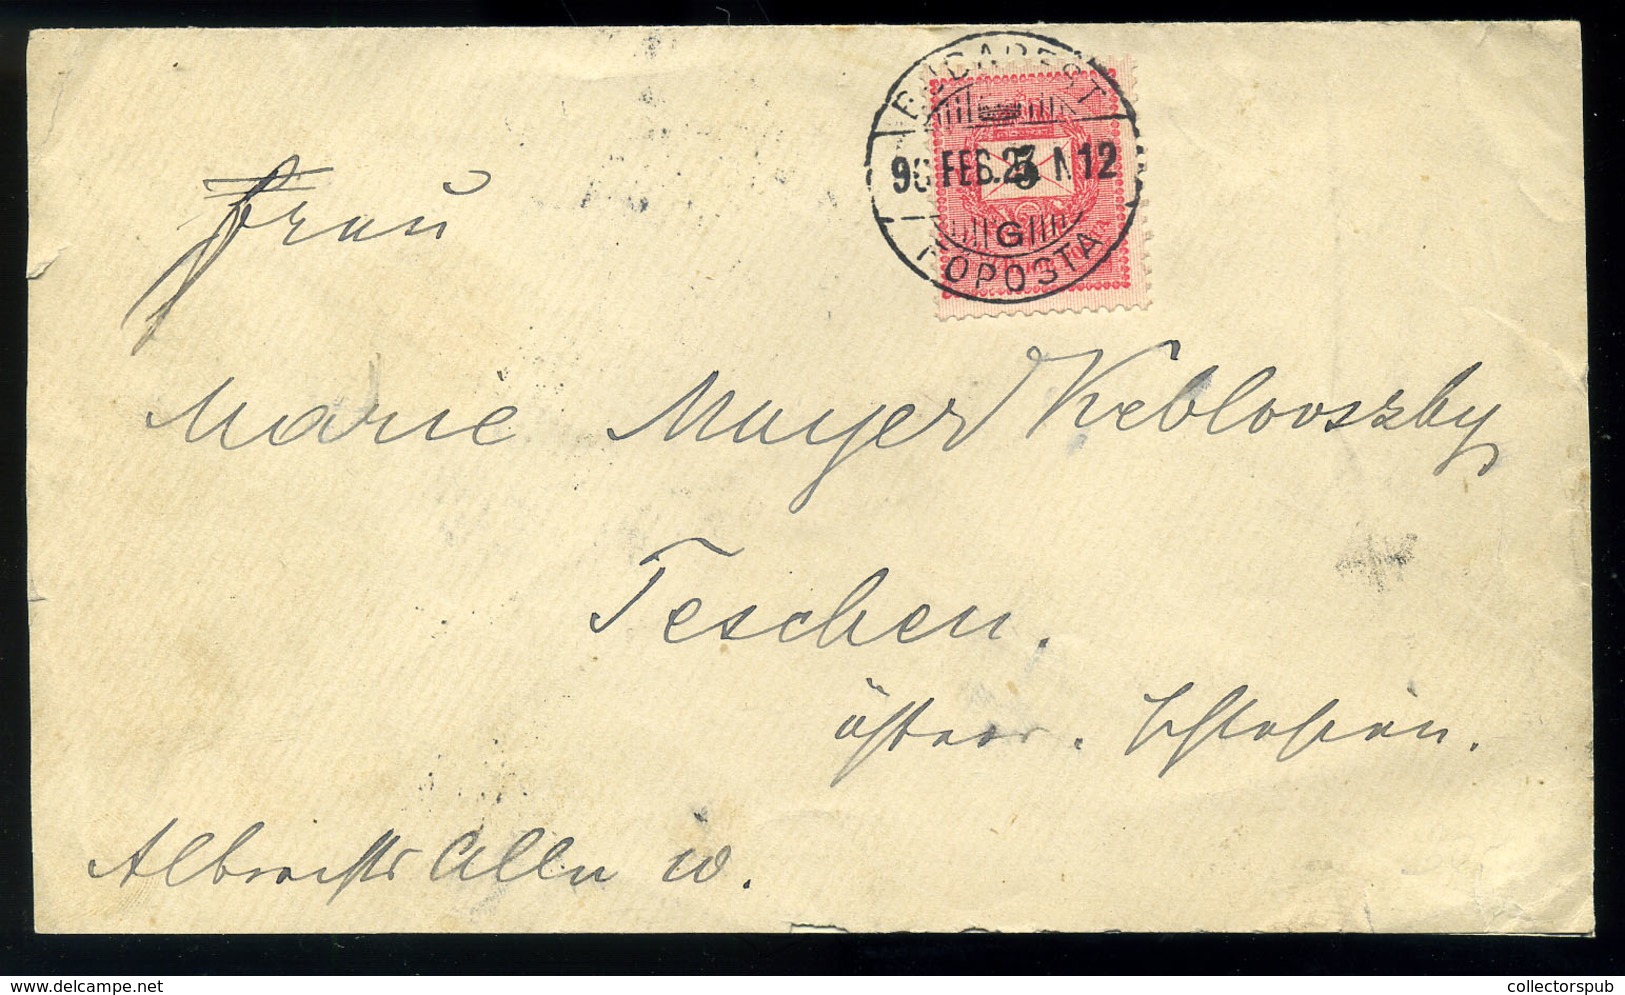 BUDAPEST
FEB. 5 12
G
FŐPOSTA
Frau
Marie Mayer Keblovszky
Teschen.
österr. Schlesien.
Albrechts Allee 10.
delcampe.net
collectorspub